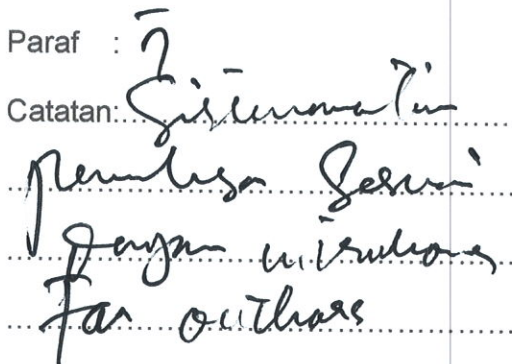 Paraf :
Catatan: Sistematika
penulisan Sesuai
dengan instructions
for authors